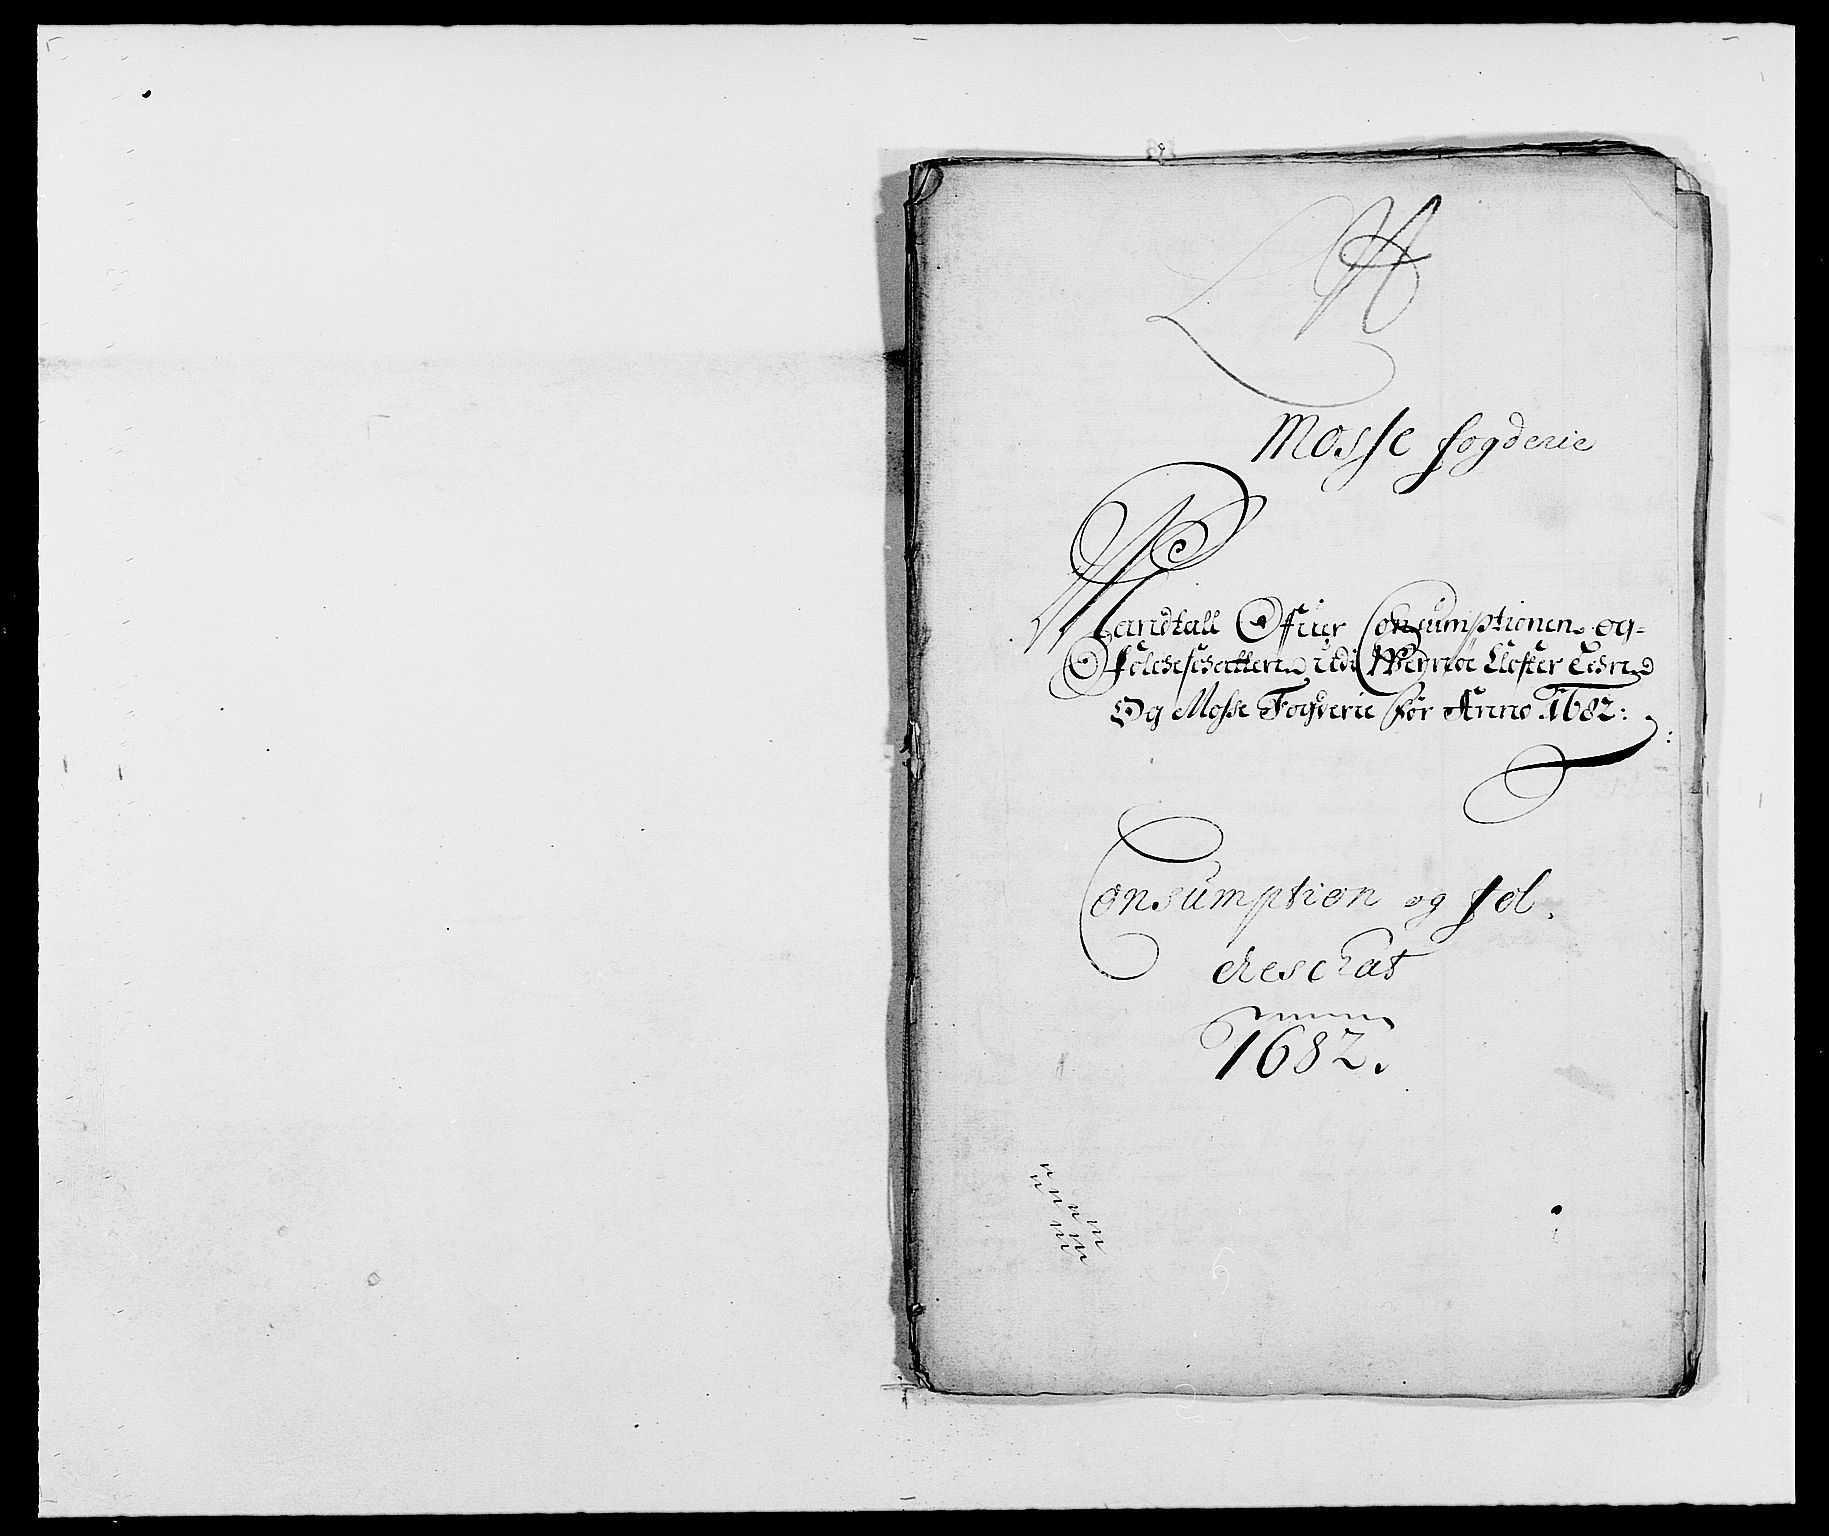 Mosse fogderie
Mandtall Offuer Consumptionen og
Folcheschatten udi Wernøe Closter Lehn
Og Mosse Fogderie for Anno 1682:
Consumption og fol,
cheschat
1682.